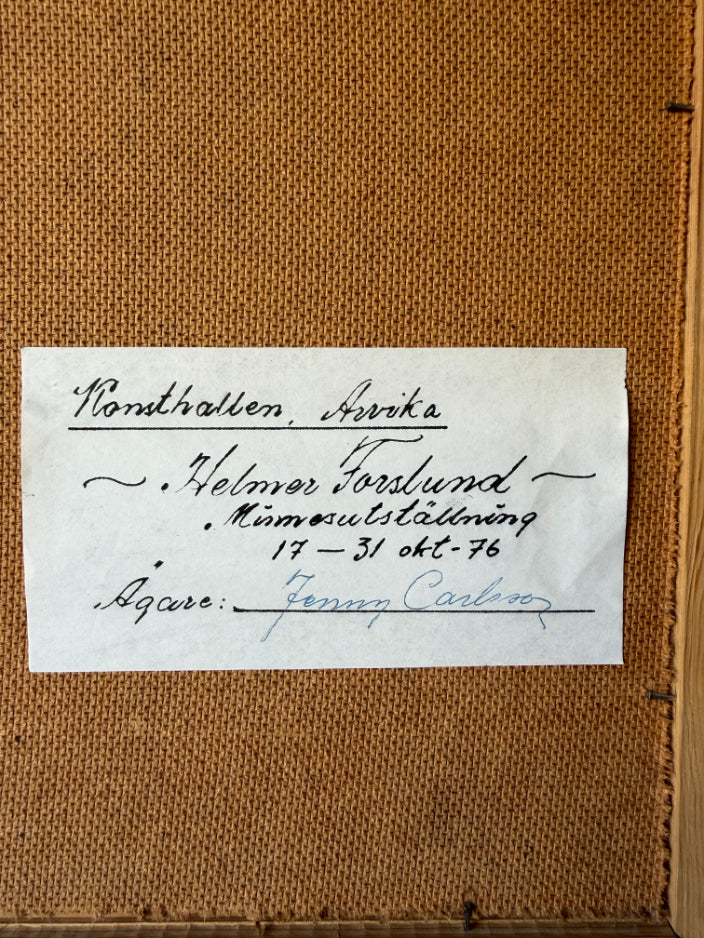 Konsthallen, Arvika
~ Helmer Forslund ~
Minnesutställning
17 – 31 okt - 76
Ägare: Jenny Carlsson